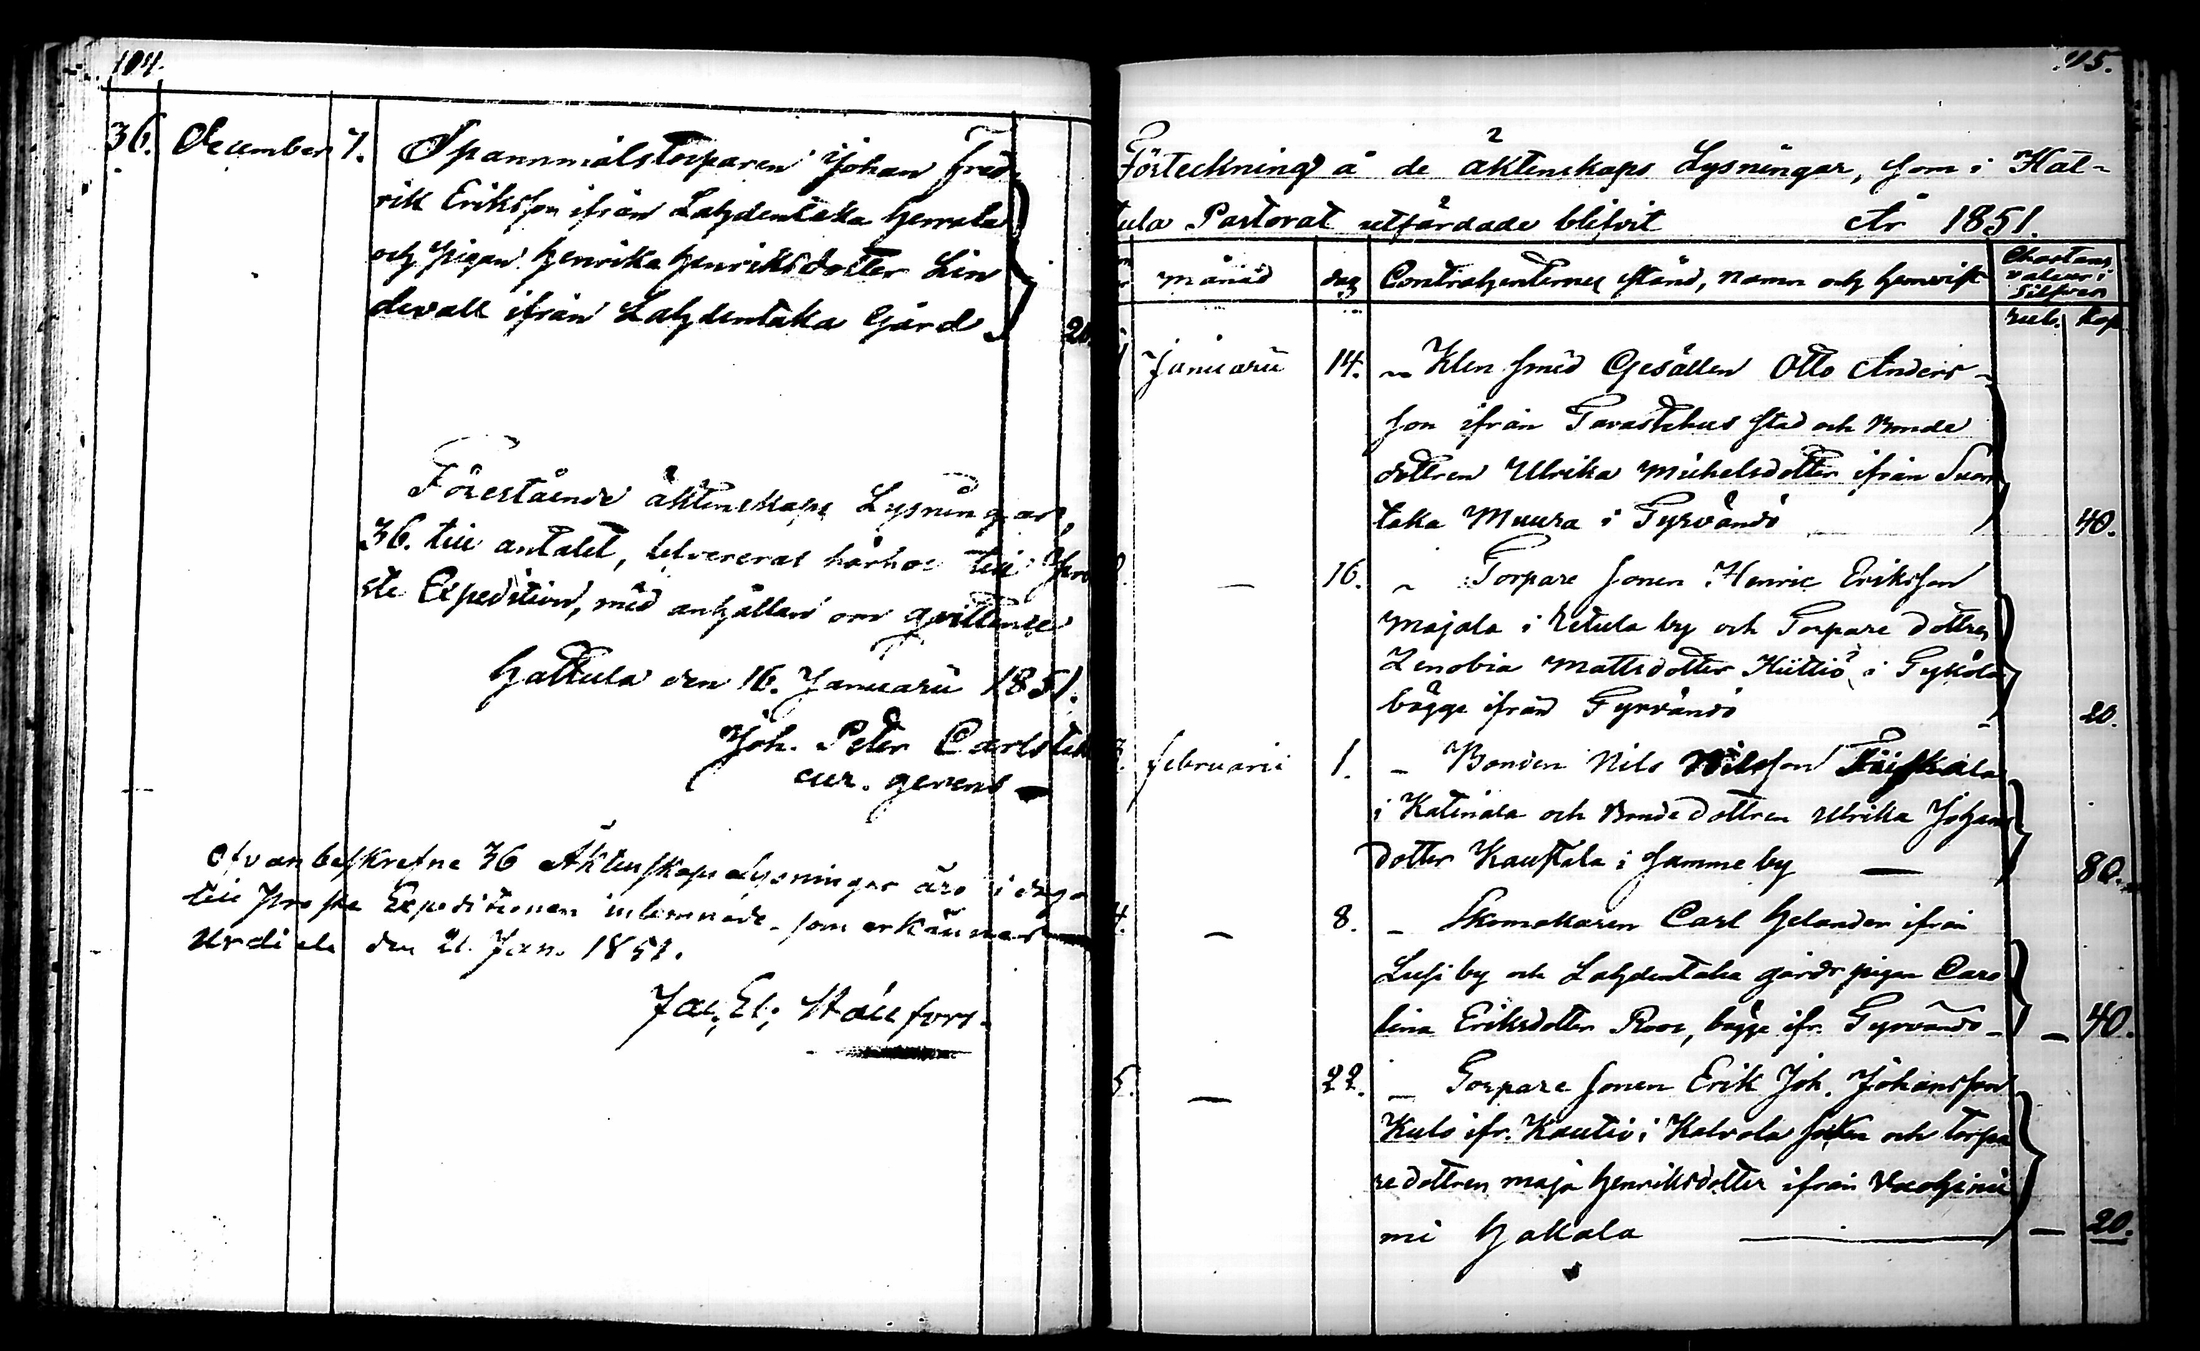 104.
36. December 7. Spannmålstorparen Johan Fred
rik Eriksson ifrån Lahdentaka Herrala
och pigan Henrika Henriksdotter Lin
devall ifrån Lahdentaka Gård 20.
Förestående äktenskaps Lysningar,
36. till antalet, lefvereras härhos till Pro
ste Expedition, med anhållan om qvittence
Hattula den 16. Januarii 1851.
Joh. Peter Carlstedt
cur. gerens
Ofvanbeskrefne 36 Äktenskapslysningar äro i dag
till Proste Expeditionen inlemnade, som erkännes
Urdiala den 21. Jan. 1851.
Jac. El. Hällfors.
Förteckning å de äktenskaps Lysningar, som i Hat-
tula Pastorat utfärdade blifvit År 1851.
månad dag Contrahenternes stånd, namn och hemvist Charta
valeur i
Silfver
rub. kop.
Januarii 14. Klen smed Gesällen Otto Anders-
son ifrån Tavastehus stad och Bonde
dottren Ulrika Michelsdotter ifrån Suon
taka Muura i Tyrvändö 40.
2. — 16. Torpare sonen Henric Eriksson
Majala i Retula by och Torpare dottren
Zenobia Mattsdotter Kiitiö i Tykölä
bägge ifrån Tyrvändö 20.
3. Februarii 1. Bonden Nils Nilsson
i Katinala och Bonde dottren Ulrika Johans
dotter Kauppala i samme by — 80.
4. — 8. Skomakaren Carl Helander ifrån
Lusi by och Lahdentaka gårds pigan Caro
lina Eriksdotter Roos, bägge ifr. Tyrvändö — 40.
5. — 22. Torpare sonen Erik Joh. Johansson
Kulo ifr. Kautio i Kalvola socken och torpa
re dottren Maja Henriksdotter ifrån Vuohinie
mi Hakala — 20.